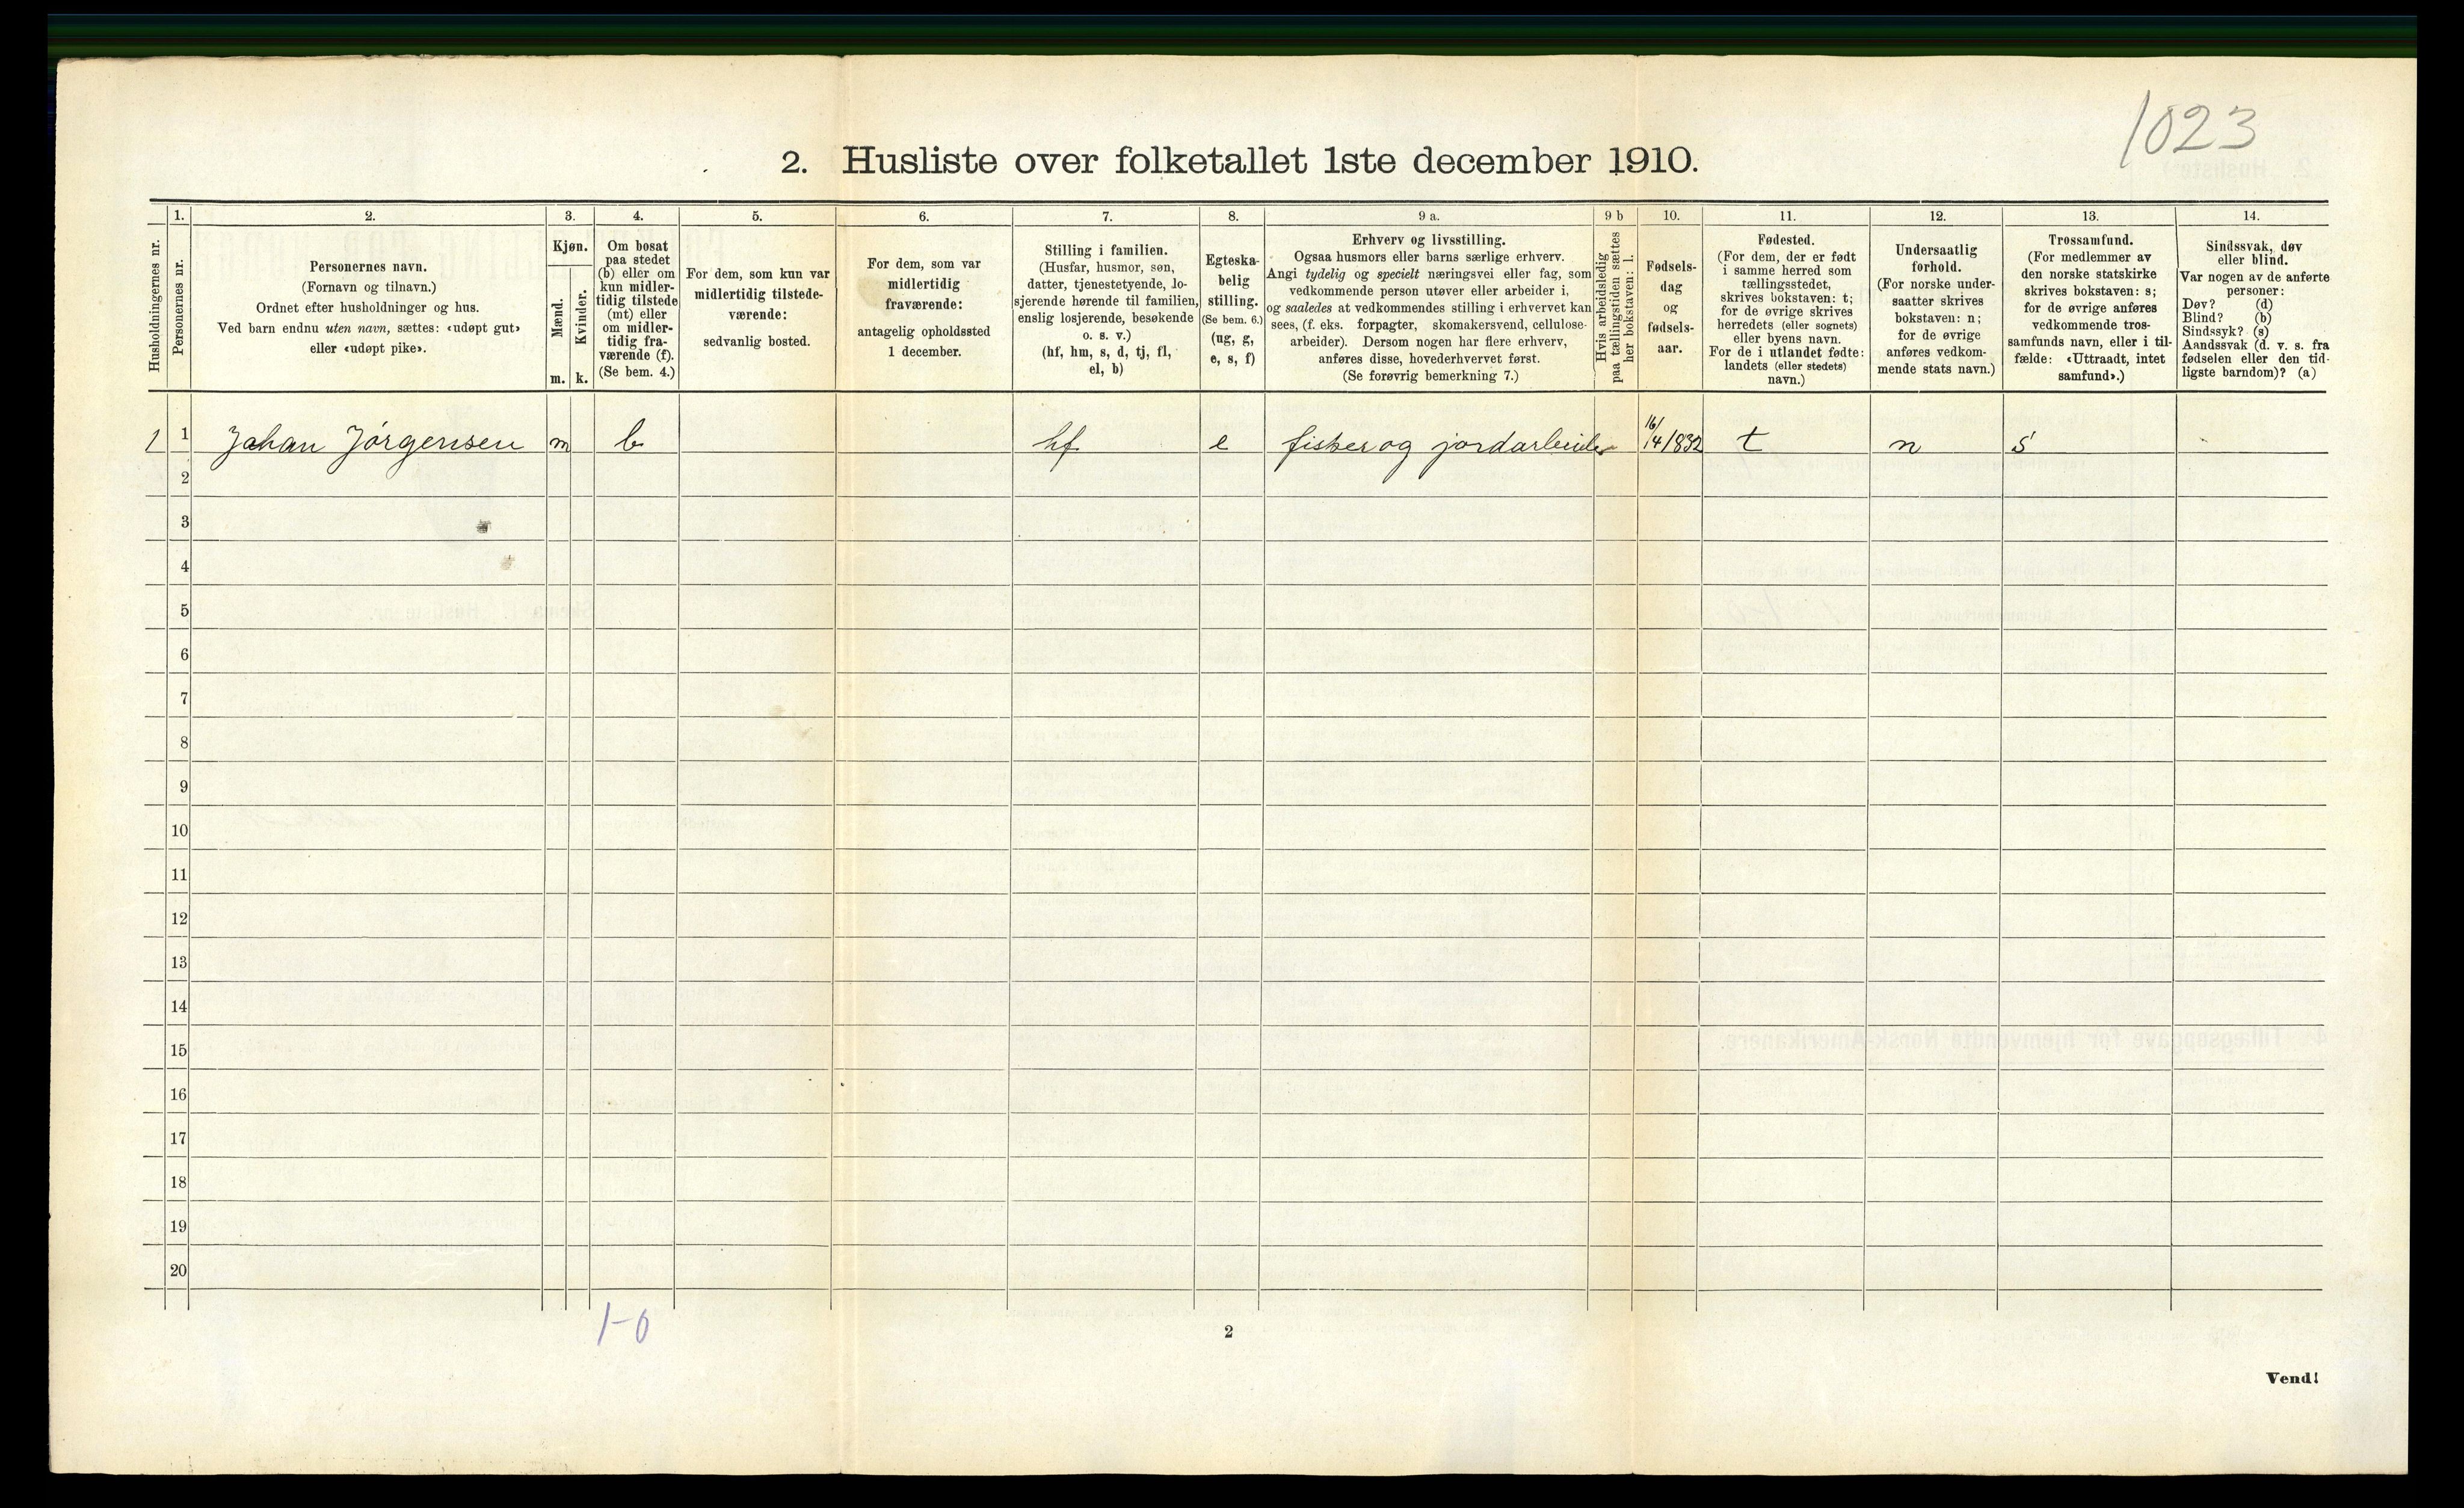 1023
2. Husliste over folketallet 1ste december 1910.
Husholdningernes nr.
1.
Personernes nr.
2.
Personernes navn.
(Fornavn og tilnavn.)
Ordnet efter husholdninger og hus.
Ved barn endnu uten navn, sættes: «udøpt gut»
eller «udøpt pike».
3.
Kjøn.
Mænd.
Kvinder.
m. k.
4.
Om bosat
paa stedet
(b) eller om
kun midler-
tidig tilstede
(mt) eller
om midler-
tidig fra-
værende (f).
(Se bem. 4.)
5.
For dem, som kun var
midlertidig tilstede-
værende:
sedvanlig bosted.
6.
For dem, som var
midlertidig
fraværende:
antagelig opholdssted
1 december.
7.
Stilling i familien.
(Husfar, husmor, søn,
datter, tjenestetyende, lo-
sjerende hørende til familien,
enslig losjerende, besøkende
o. s. v.)
(hf, hm, s, d, tj, fl,
el, b)
8.
Egteska-
belig
stilling.
(Se bem. 6.)
(ug, g,
e, s, f)
9 a.
Erhverv og livsstilling.
Ogsaa husmors eller barns særlige erhverv.
Angi tydelig og specielt næringsvei eller fag, som
vedkommende person utøver eller arbeider i,
og saaledes at vedkommendes stilling i erhvervet kan
sees, (f. eks. forpagter, skomakersvend, cellulose-
arbeider). Dersom nogen har flere erhverv,
anføres disse, hovederhvervet først.
(Se forøvrig bemerkning 7.)
9 b
Hvis arbeidsledig
paa tællingstiden sættes
her bokstaven: l.
10.
Fødsels-
dag
og
fødsels-
aar.
11.
Fødested.
(For dem, der er født
i samme herred som
tællingsstedet,
skrives bokstaven: t;
for de øvrige skrives
herredets (eller sognets)
eller byens navn.
For de i utlandet fødte:
landets (eller stedets)
navn.)
12.
Undersaatlig
forhold.
(For norske under-
saatter skrives
bokstaven: n;
for de øvrige
anføres vedkom-
mende stats navn.)
13.
Trossamfund.
(For medlemmer av
den norske statskirke
skrives bokstaven: s;
for de øvrige anføres
vedkommende tros-
samfunds navn, eller i til-
fælde: «Uttraadt, intet
samfund».)
14.
Sindssvak, døv
eller blind.
Var nogen av de anførte
personer:
Døv? (d)
Blind? (b)
Sindssyk? (s)
Aandssvak (d. v. s. fra
fødselen eller den tid-
ligste barndom)? (a)
1 1 Johan Jørgensen m b hf e fisker og jordarbeider 16/4 1832 t n s
2
3
4
5
6
7
8
9
10
11
12
13
14
15
16
17
18
19
20
1-0
2
Vend!